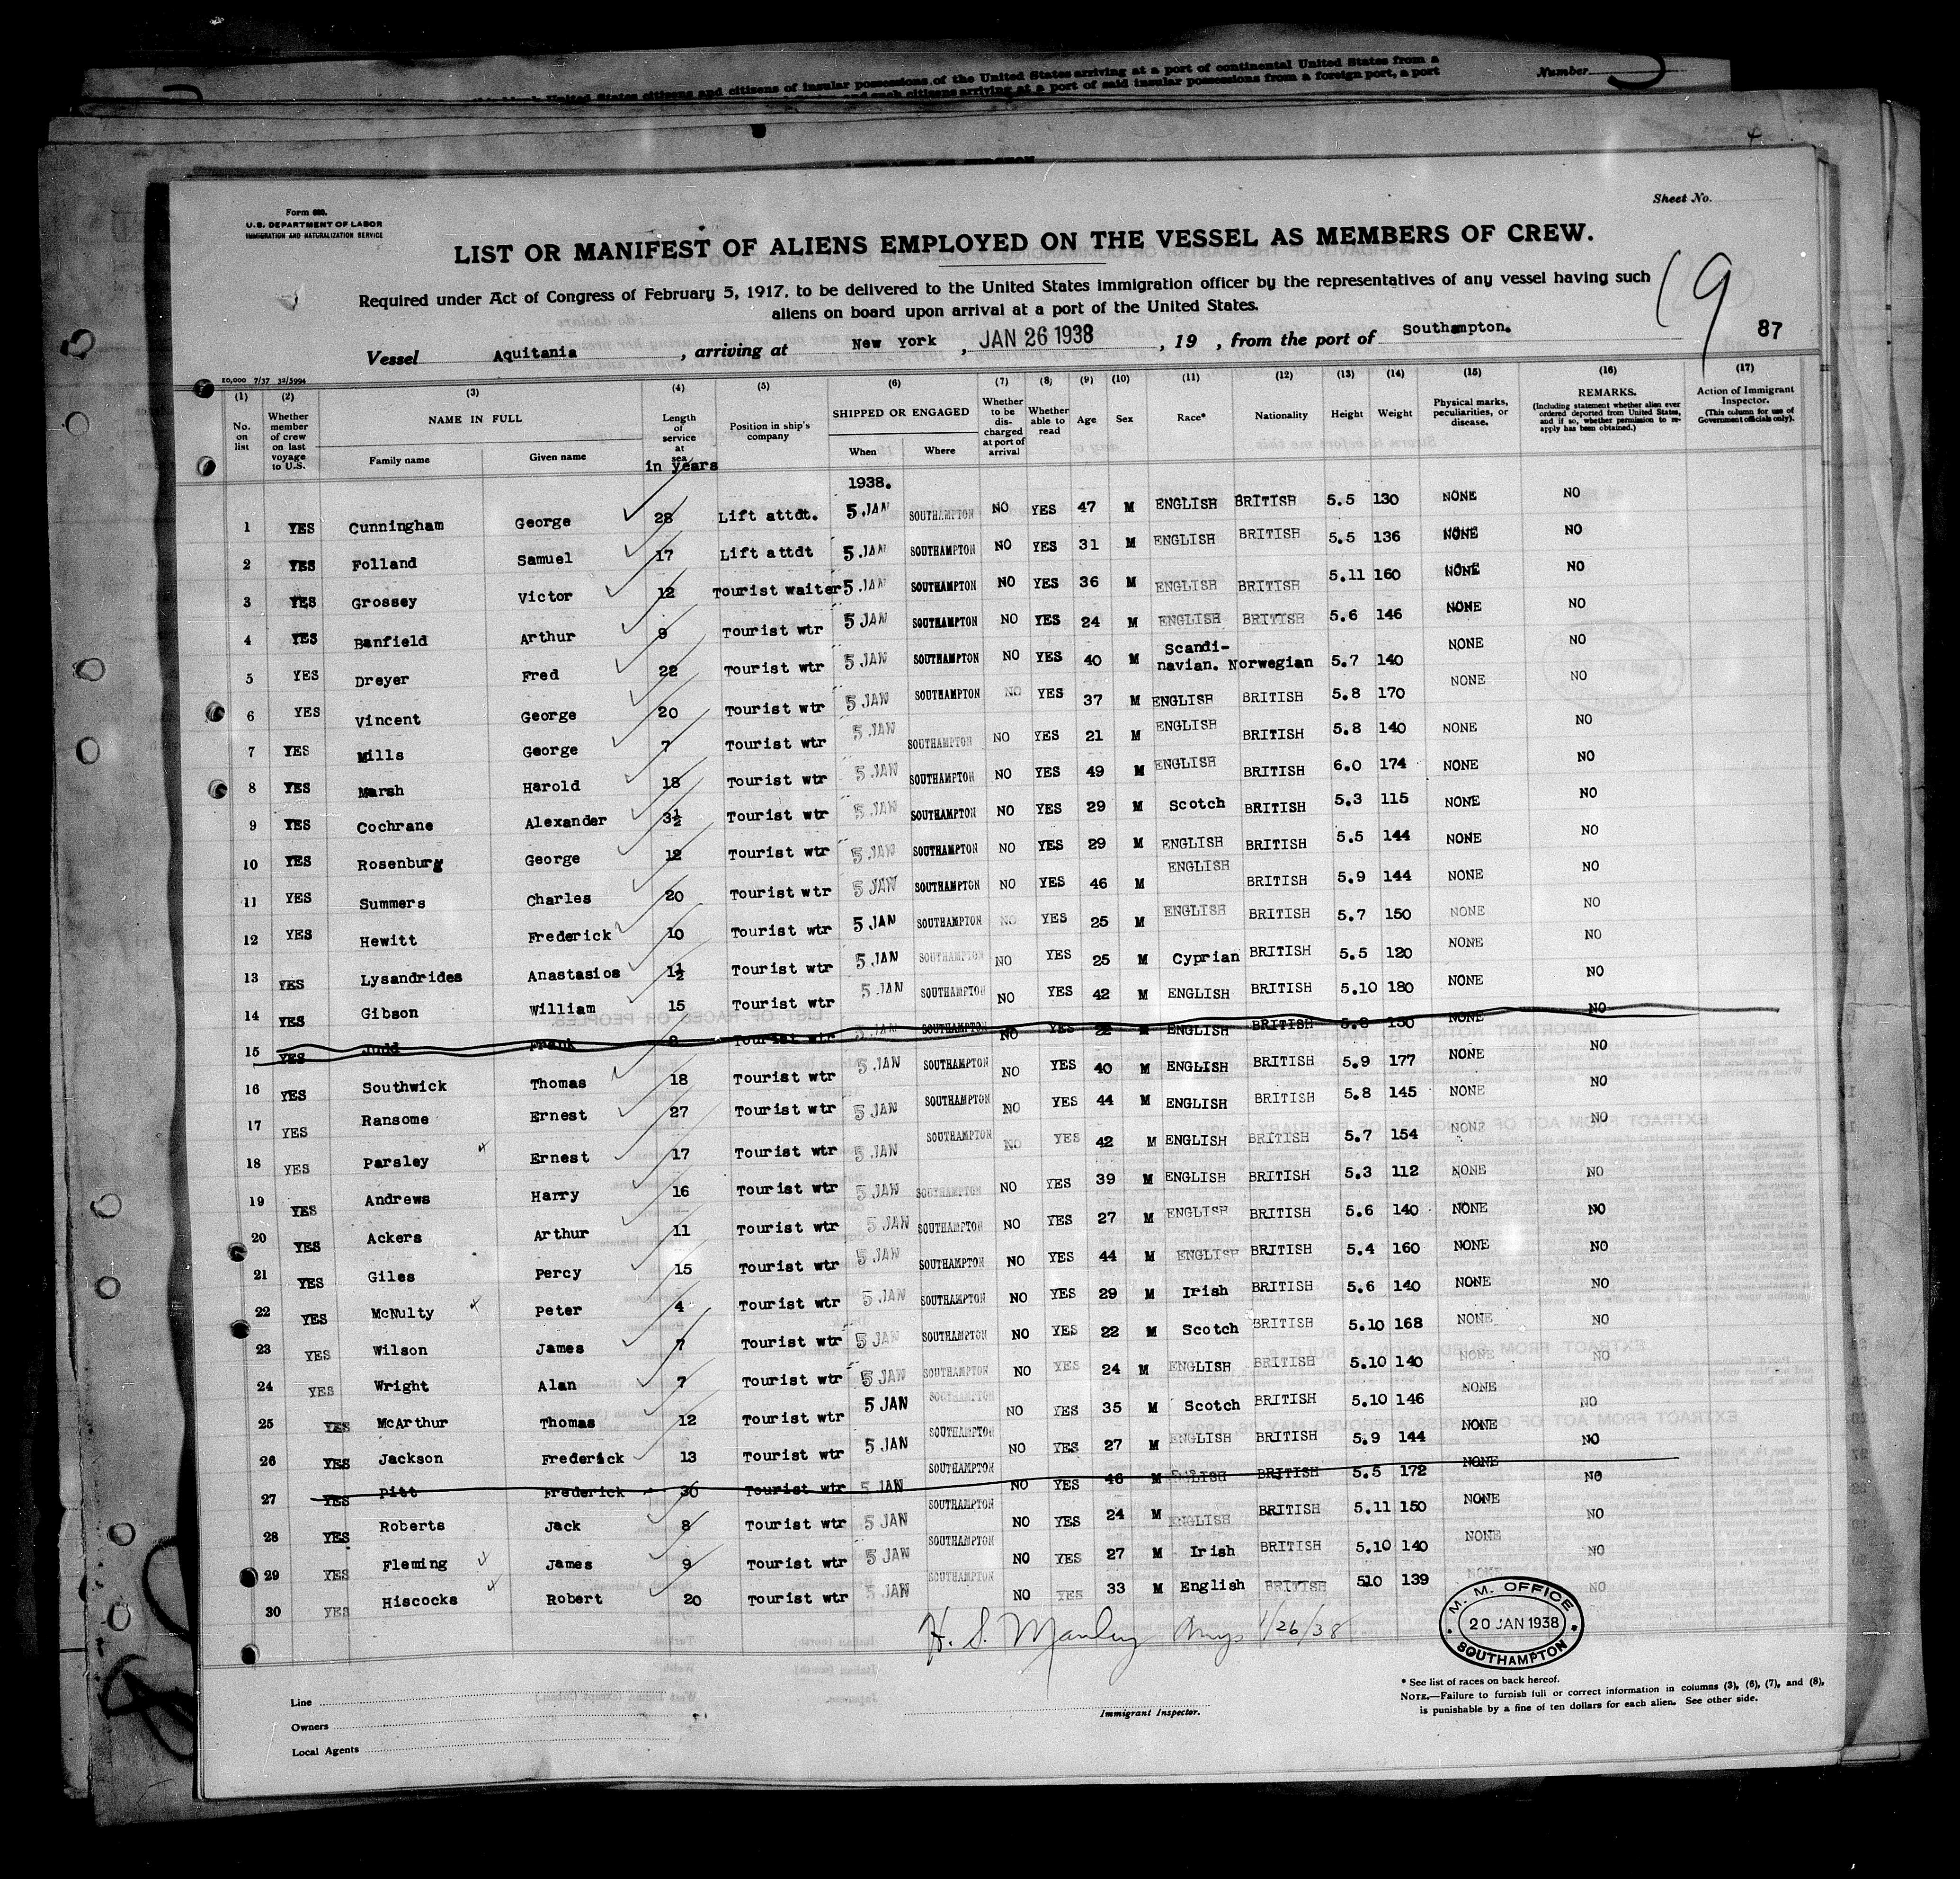 this blank United States citizens and citizens of insular possessions of the United States arriving at a port of continental United States from a
and such citizens arriving at a port of said insular possessions from a foreign port, a port
Number
Sheet No.
Form 689.
U.S. DEPARTMENT OF LABOR
IMMIGRATION AND NATURALIZATION SERVICE
LIST OR MANIFEST OF ALIENS EMPLOYED ON THE VESSEL AS MEMBERS OF CREW.
Required under Act of Congress of February 5, 1917, to be delivered to the United States immigration officer by the representatives of any vessel having such
aliens on board upon arrival at a port of the United States.
19
87
Vessel Aquitania, arriving at New York, JAN 26 1938, 19 , from the port of Southampton.
20,000 7/37 32/5994
(1) No. on list
(2) Whether member of crew on last voyage to U.S.
(3) NAME IN FULL Family name Given name
(4) Length of service at sea in years
(5) Position in ship's company
(6) SHIPPED OR ENGAGED When Where
(7) Whether to be discharged at port of arrival
(8) Whether able to read
(9) Age
(10) Sex
(11) Race*
(12) Nationality
(13) Height
(14) Weight
(15) Physical marks, peculiarities, or disease.
(16) REMARKS. (Including statement whether alien ever ordered deported from United States, and if so, whether permission to re-apply has been obtained.)
(17) Action of Immigrant Inspector. (This column for use of Government officials only).
1938.
1 YES Cunningham George 28 Lift attdt. 5 JAN SOUTHAMPTON NO YES 47 M ENGLISH BRITISH 5.5 130 NONE NO
2 YES Folland Samuel 17 Lift attdt 5 JAN SOUTHAMPTON NO YES 31 M ENGLISH BRITISH 5.5 136 NONE NO
3 YES Grossey Victor 12 Tourist waiter 5 JAN SOUTHAMPTON NO YES 36 M ENGLISH BRITISH 5.11 160 NONE NO
4 YES Banfield Arthur 9 Tourist wtr 5 JAN SOUTHAMPTON NO YES 24 M ENGLISH BRITISH 5.6 146 NONE NO
5 YES Dreyer Fred 22 Tourist wtr 5 JAN SOUTHAMPTON NO YES 40 M Scandi-navian. Norwegian 5.7 140 NONE NO
6 YES Vincent George 20 Tourist wtr 5 JAN SOUTHAMPTON NO YES 37 M ENGLISH BRITISH 5.8 170 NONE NO
7 YES Mills George 7 Tourist wtr 5 JAN SOUTHAMPTON NO YES 21 M ENGLISH BRITISH 5.8 140 NONE NO
8 YES Marsh Harold 18 Tourist wtr 5 JAN SOUTHAMPTON NO YES 49 M ENGLISH BRITISH 6.0 174 NONE NO
9 YES Cochrane Alexander 3½ Tourist wtr 5 JAN SOUTHAMPTON NO YES 29 M Scotch BRITISH 5.3 115 NONE NO
10 YES Rosenburg George 12 Tourist wtr 5 JAN SOUTHAMPTON NO YES 29 M ENGLISH BRITISH 5.5 144 NONE NO
11 YES Summers Charles 20 Tourist wtr 5 JAN SOUTHAMPTON NO YES 46 M ENGLISH BRITISH 5.9 144 NONE NO
12 YES Hewitt Frederick 10 Tourist wtr 5 JAN SOUTHAMPTON NO YES 25 M ENGLISH BRITISH 5.7 150 NONE NO
13 YES Lysandrides Anastasios 1½ Tourist wtr 5 JAN SOUTHAMPTON NO YES 25 M Cyprian BRITISH 5.5 120 NONE NO
14 YES Gibson William 15 Tourist wtr 5 JAN SOUTHAMPTON NO YES 42 M ENGLISH BRITISH 5.10 180 NONE NO
15 YES Judd Frank 8 Tourist wtr 5 JAN SOUTHAMPTON NO YES 22 M ENGLISH BRITISH 5.8 150 NONE NO
16 YES Southwick Thomas 18 Tourist wtr 5 JAN SOUTHAMPTON NO YES 40 M ENGLISH BRITISH 5.9 177 NONE NO
17 YES Ransome Ernest 27 Tourist wtr 5 JAN SOUTHAMPTON NO YES 44 M ENGLISH BRITISH 5.8 145 NONE NO
18 YES Parsley Ernest 17 Tourist wtr 5 JAN SOUTHAMPTON NO YES 42 M ENGLISH BRITISH 5.7 154 NONE NO
19 YES Andrews Harry 16 Tourist wtr 5 JAN SOUTHAMPTON NO YES 39 M ENGLISH BRITISH 5.3 112 NONE NO
20 YES Ackers Arthur 11 Tourist wtr 5 JAN SOUTHAMPTON NO YES 27 M ENGLISH BRITISH 5.6 140 NONE NO
21 YES Giles Percy 15 Tourist wtr 5 JAN SOUTHAMPTON NO YES 44 M ENGLISH BRITISH 5.4 160 NONE NO
22 YES McNulty Peter 4 Tourist wtr 5 JAN SOUTHAMPTON NO YES 29 M Irish BRITISH 5.6 140 NONE NO
23 YES Wilson James 7 Tourist wtr 5 JAN SOUTHAMPTON NO YES 22 M Scotch BRITISH 5.10 168 NONE NO
24 YES Wright Alan 7 Tourist wtr 5 JAN SOUTHAMPTON NO YES 24 M ENGLISH BRITISH 5.10 140 NONE NO
25 YES McArthur Thomas 12 Tourist wtr 5 JAN SOUTHAMPTON NO YES 35 M Scotch BRITISH 5.10 146 NONE NO
26 YES Jackson Frederick 13 Tourist wtr 5 JAN SOUTHAMPTON NO YES 27 M ENGLISH BRITISH 5.9 144 NONE NO
27 YES Pitt Frederick 30 Tourist wtr 5 JAN SOUTHAMPTON NO YES 46 M ENGLISH BRITISH 5.5 172 NONE NO
28 YES Roberts Jack 8 Tourist wtr 5 JAN SOUTHAMPTON NO YES 24 M ENGLISH BRITISH 5.11 150 NONE NO
29 YES Fleming James 9 Tourist wtr 5 JAN SOUTHAMPTON NO YES 27 M Irish BRITISH 5.10 140 NONE NO
30 YES Hiscocks Robert 20 Tourist wtr 5 JAN SOUTHAMPTON NO YES 33 M English BRITISH 510 139 NONE NO
H. S. Manley 1/26/38
M. M. OFFICE
20 JAN 1938
SOUTHAMPTON
Line
Owners
Local Agents
Immigrant Inspector.
* See list of races on back hereof.
NOTE.—Failure to furnish full or correct information in columns (3), (6), (7), and (8),
is punishable by a fine of ten dollars for each alien. See other side.